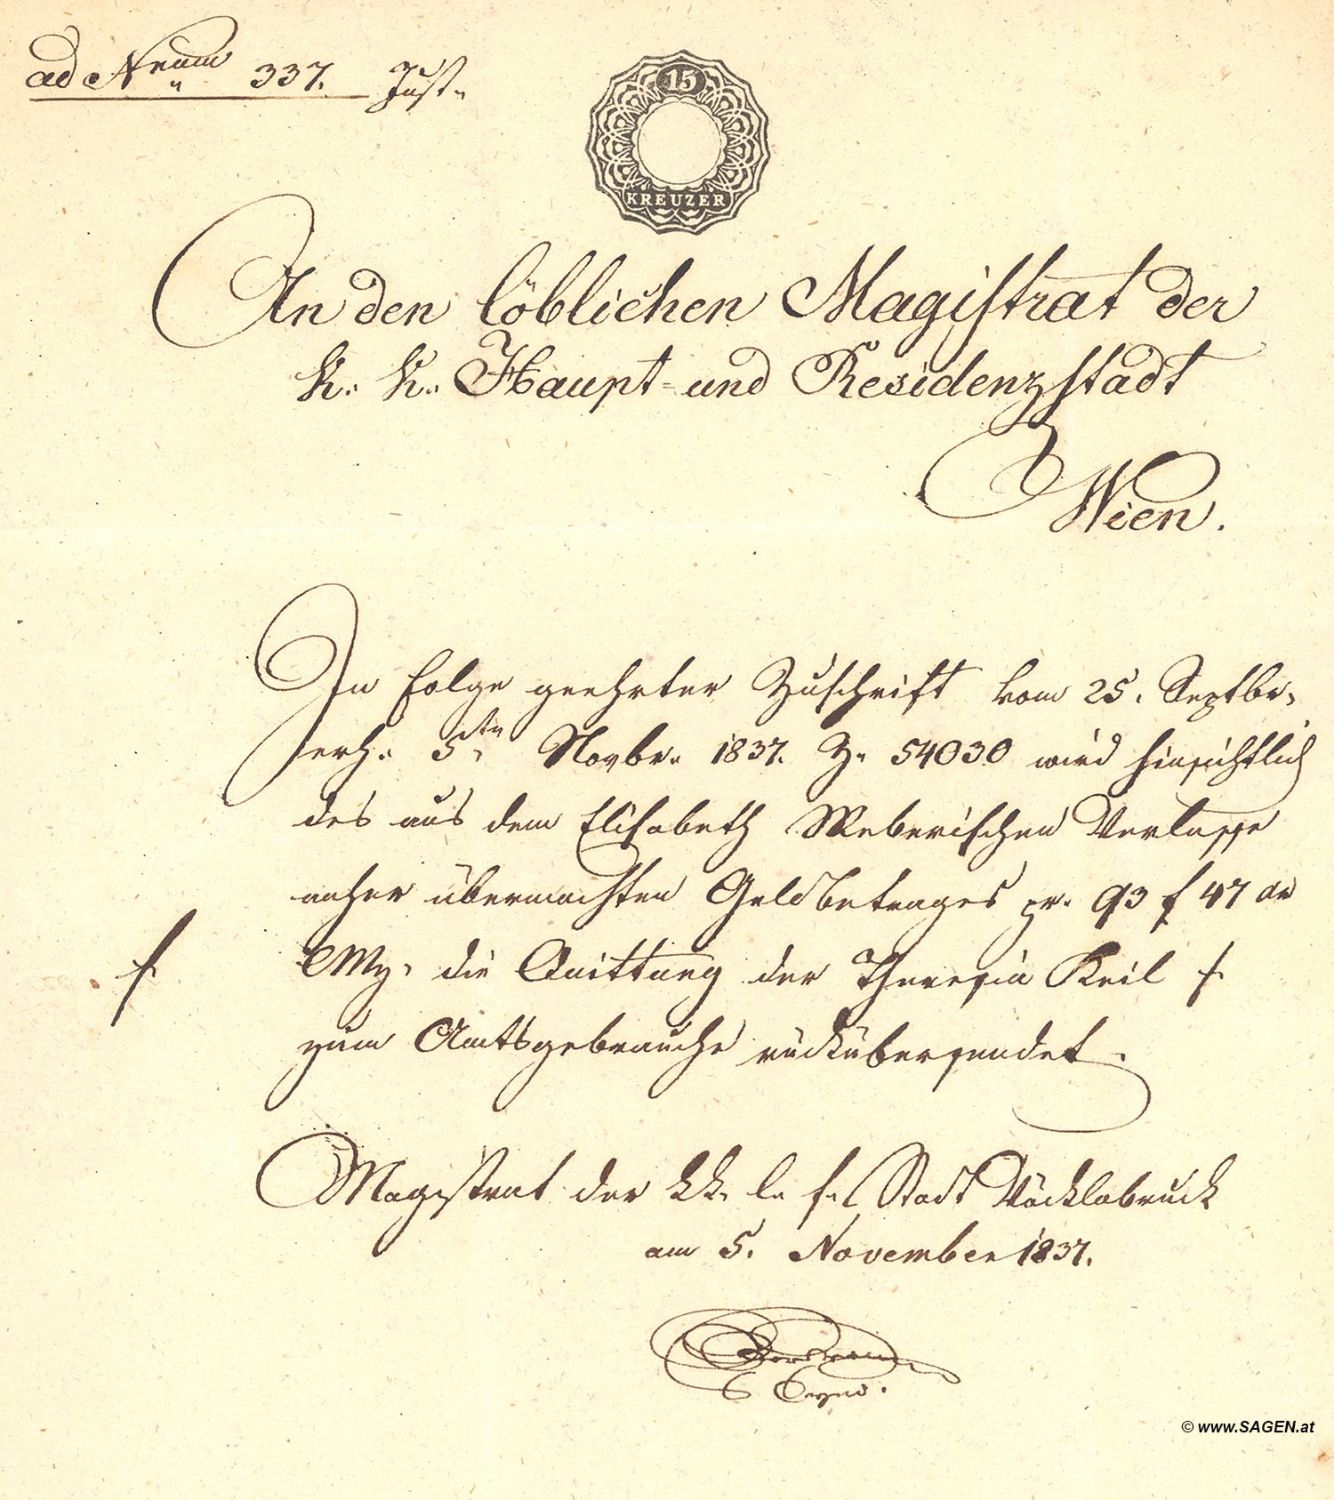 ad Nrum 337. Just.
15
KREUZER
An den löblichen Magistrat der
K: K: Haupt- und Residenzstadt
Wien.
In Folge geehrter Zuschrift vom 25. Septbr.
erh: 5ten Novbr. 1837. Z. 54030 wird hinsichtlich
des aus dem Elisabeth Weberischen Verlasse
anher übermachten Geldbetrages pr. 93 f 47 xr
CMz. die Quittung der Theresia Keil ./.
./.
zum Amtsgebrauche rückübersendet.
Magistrat der kk. l. f. Stadt Vöcklabruck
am 5. November 1837.
© www.SAGEN.at